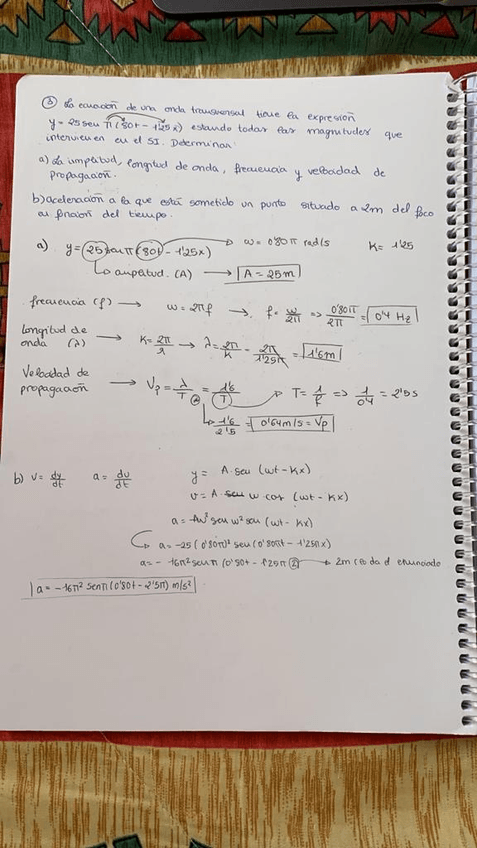 ③ La ecuación de una onda transversal tiene la expresión
y = 25 sen π (0'80t - 1'25x) estando todas las magnitudes que
intervienen en el SI. Determinar:
a) La amplitud, longitud de onda, frecuencia y velocidad de
propagación.
b) aceleración a la que está sometido un punto situado a 2m del foco
en función del tiempo.
a) y = 25 sen π (0'80t - 1'25x) → ω = 0'80π rad/s K = 1'25
↳ amplitud. (A) → A = 25m
frecuencia (f) → ω = 2πf → f = ω/2π => 0'80π/2π = 0'4 Hz
Longitud de onda (λ) → K = 2π/λ → λ = 2π/K = 2π/1'25π = 1'6m
Velocidad de propagación → Vp = λ/T = 1'6/T → T = 1/f => 1/0'4 = 2'5s
↳ 1'6/2'5 = 0'64m/s = Vp
b) v = dy/dt a = dv/dt y = A · sen (wt - Kx)
v = A · w cos (wt - Kx)
a = -Aw² sen (wt - Kx)
↳ a = -25 (0'80π)² sen (0'80πt - 1'25πx)
a = - 16π² sen π (0'80t - 1'25π ②) → 2m nos da el enunciado
a = -16π² sen π (0'80t - 2'5π) m/s²